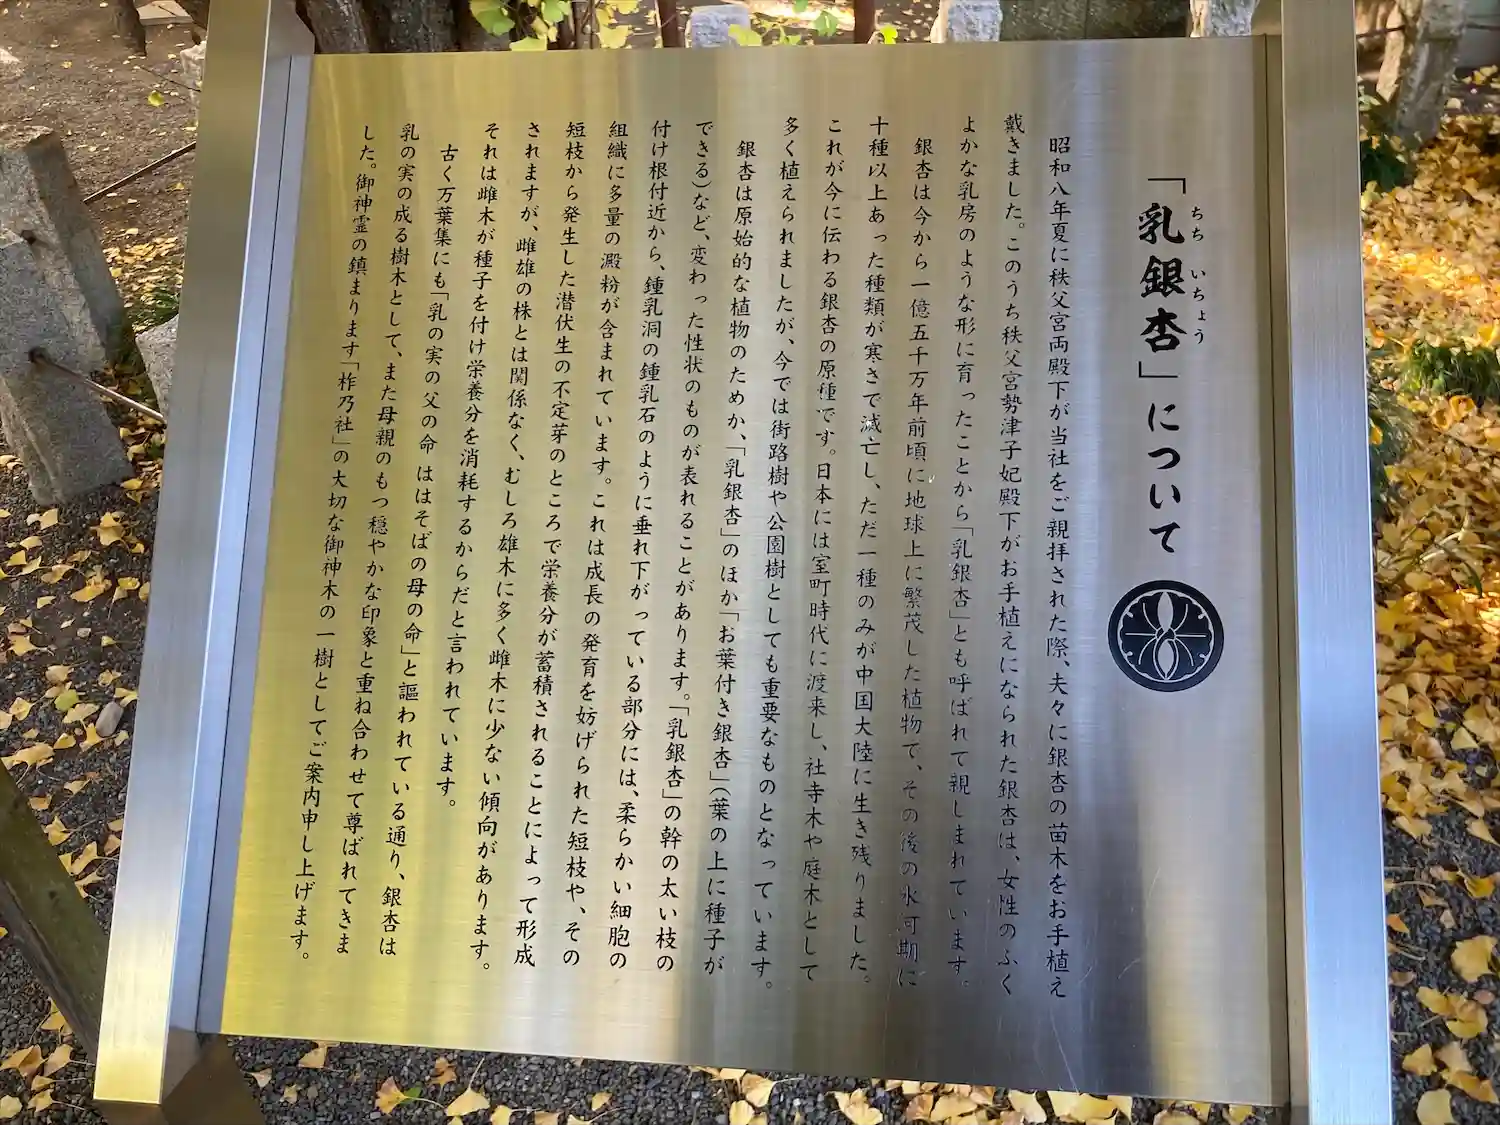 「乳銀杏」について
ちち いちょう
昭和八年夏に秩父宮両殿下が当社をご親拝された際、夫々に銀杏の苗木をお手植え
戴きました。このうち秩父宮勢津子妃殿下がお手植えになられた銀杏は、女性のふく
よかな乳房のような形に育ったことから「乳銀杏」とも呼ばれて親しまれています。
銀杏は今から一億五千万年前頃に地球上に繁茂した植物で、その後の氷河期に
十種以上あった種類が寒さで滅亡し、ただ一種のみが中国大陸に生き残りました。
これが今に伝わる銀杏の原種です。日本には室町時代に渡来し、社寺木や庭木として
多く植えられましたが、今では街路樹や公園樹としても重要なものとなっています。
銀杏は原始的な植物のためか、「乳銀杏」のほか「お葉付き銀杏」(葉の上に種子が
できる)など、変わった性状のものが表れることがあります。「乳銀杏」の幹の太い枝の
付け根付近から、鍾乳洞の鍾乳石のように垂れ下がっている部分には、柔らかい細胞の
組織に多量の澱粉が含まれています。これは成長の発育を妨げられた短枝や、その
短枝から発生した潜伏生の不定芽のところで栄養分が蓄積されることによって形成
されますが、雌雄の株とは関係なく、むしろ雄木に多く雌木に少ない傾向があります。
それは雌木が種子を付け栄養分を消耗するからだと言われています。
古く万葉集にも「乳の実の父の命 ははそばの母の命」と謳われている通り、銀杏は
乳の実の成る樹木として、また母親のもつ穏やかな印象と重ね合わせて尊ばれてきま
した。御神霊の鎮まります「柞乃社」の大切な御神木の一樹としてご案内申し上げます。